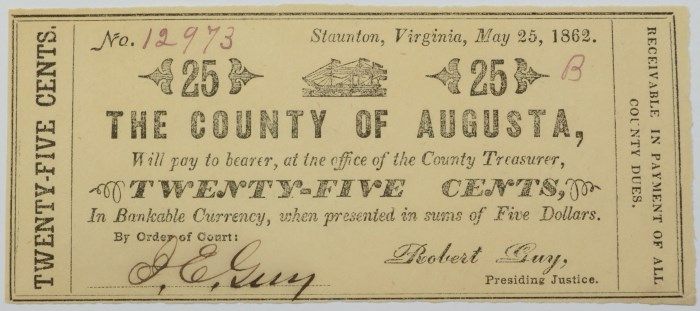 TWENTY-FIVE CENTS.
No. 12973
Staunton, Virginia, May 25, 1862.
25 25 B
THE COUNTY OF AUGUSTA,
Will pay to bearer, at tne office of the County Treasurer,
TWENTY-FIVE CENTS,
In Bankable Currency, when presented in sums of Five Dollars.
By Order of Court:
J. E. Guy
Robert Guy,
Presiding Justice.
RECEIVABLE IN PAYMENT OF ALL
COUNTY DUES.